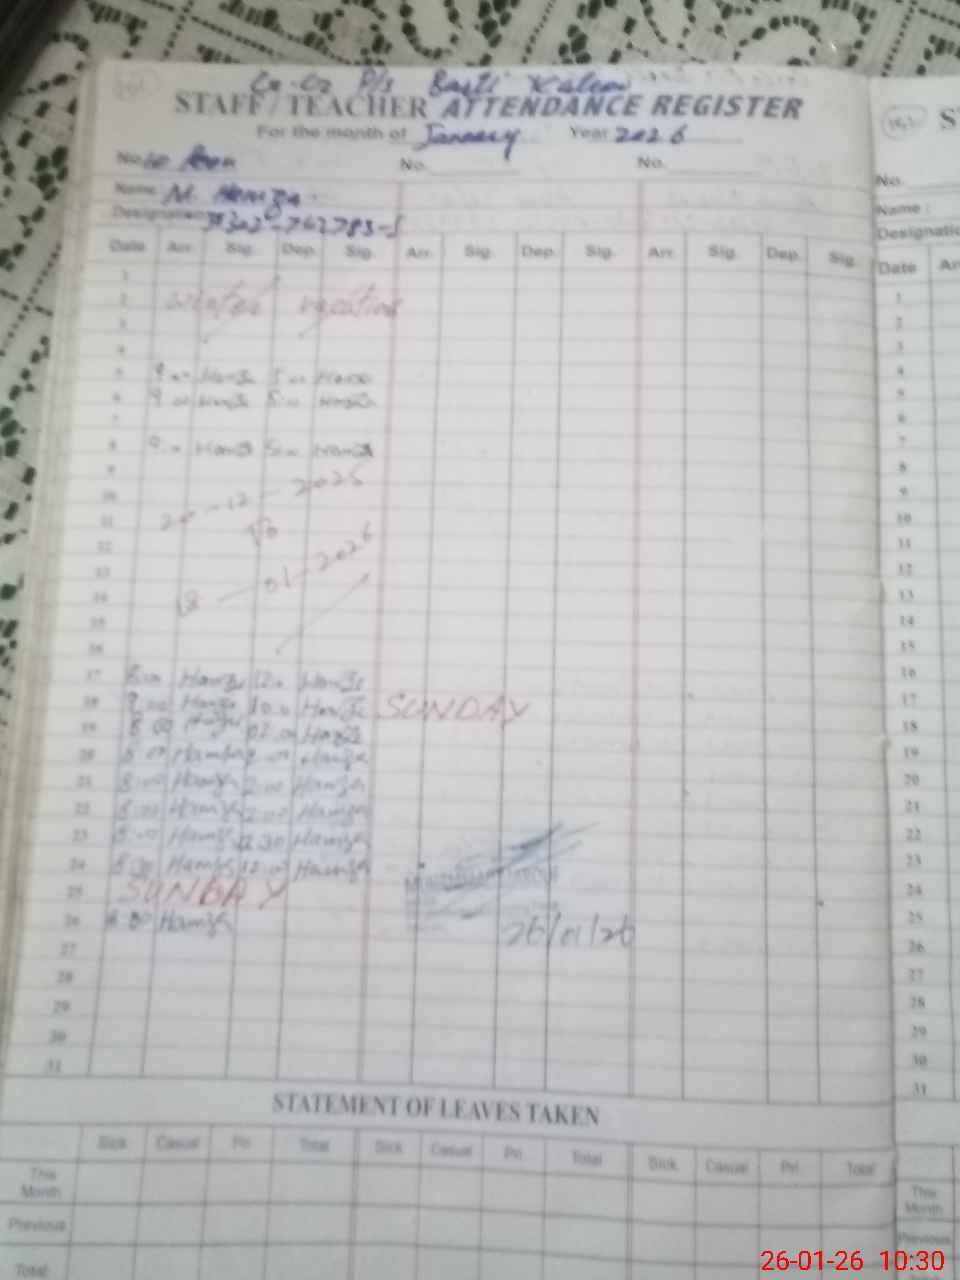 P/S Basti
STAFF / TEACHER ATTENDANCE REGISTER
For the month of January Year 2026
No. No. No.
Name M. Hamza
Designation
Date Arr. Sig. Dep. Sig. Arr. Sig. Dep. Sig. Arr. Sig. Dep. Sig.
1
2 winter vacation
3
4
5 9:00 Hamza 5:00 Hamza
6 9:00 Hamza 5:00 Hamza
7
8 9:00 Hamza 5:00 Hamza
9
10 20-12-2025
11 To
12
13
14 18-01-2026
15
16
17 8:00 Hamza 12:00 Hamza
18 9:00 Hamza 10:00 Hamza SUNDAY
19 8:00 Hamza 02:00 Hamza
20 8:00 Hamza 2:00 Hamza
21 8:00 Hamza 2:00 Hamza
22 8:00 Hamza 2:00 Hamza
23 8:00 Hamza 12:30 Hamza
24 8:00 Hamza 12:00 Hamza
25 SUNDAY
26 8:00 Hamza 26/01/26
27
28
29
30
31
STATEMENT OF LEAVES TAKEN
Sick Casual Pri. Total Sick Casual Pri. Total Sick Casual Pri. Total
This Month
Previous
Total:
S
No.
Name :
Designatio
Date Ar
1
2
3
4
5
6
7
8
9
10
11
12
13
14
15
16
17
18
19
20
21
22
23
24
25
26
27
28
29
30
31
This Month
Previous
26-01-26 10:30